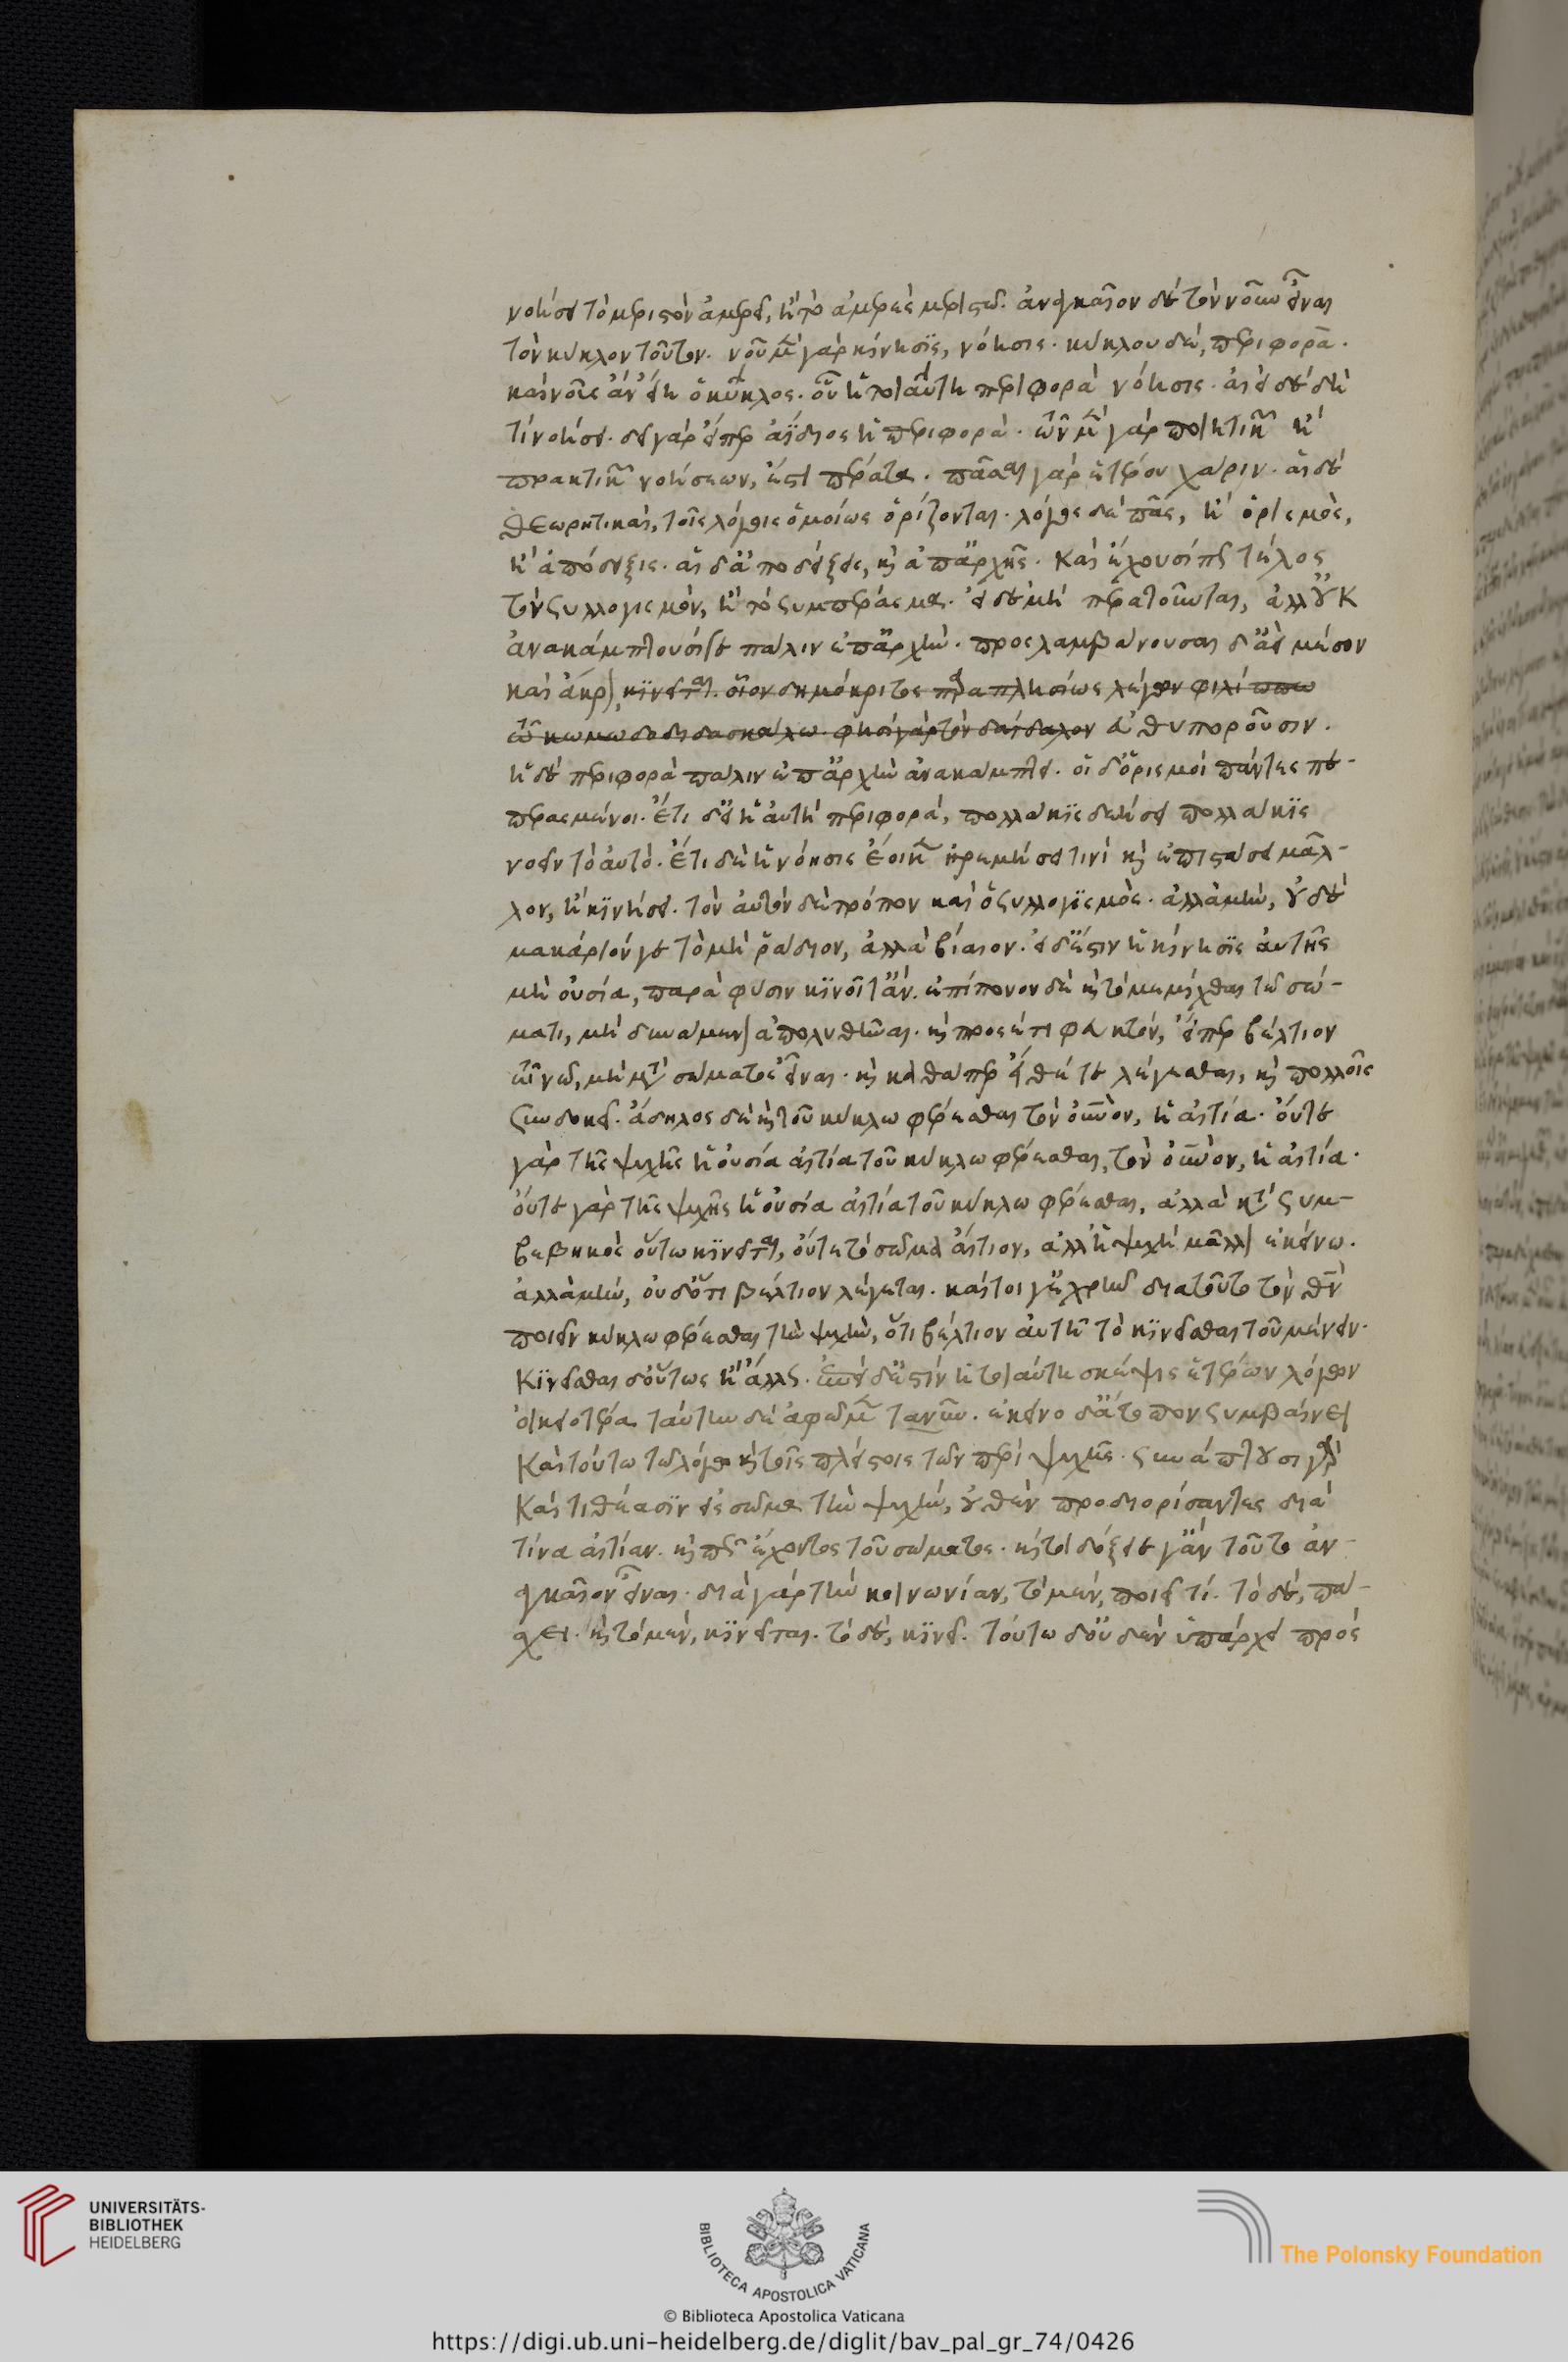 νοήσει τὸ μεριστὸν ἀμερεῖ, ἢ τὸ ἀμερὲς μεριστῶ. ἀναγκαῖον δὲ τὸν νοῦν εἶναι
τὸν κύκλον τοῦτον. νοῦ μὲν γὰρ κίνησϊς, νόησις. κύκλου δὲ, περιφορᾶ.
καὶ νοῦς ἂν εἴη ὁ κύκλος. οὗ ἡ τοιαύτη περιφορὰ νόησις. ἀεὶ δὲ δὴ
τί νοήσει. δεῖ γὰρ εἴπερ ἀΐδιος ἡ περιφορά. τῶν μὲν γὰρ
πρακτικῶν νοήσεων, ἐστὶ πέρατα. πᾶσαι γὰρ ἑτέρου χάριν. αἱ δὲ
θεωρητικαὶ, τοῖς λόγοις ὁμοίως ὁρίζονται. λόγος δὲ πᾶς, ἢ ὁρισμὸς,
ἢ ἀπόδειξις. αἱ δ' ἀποδείξεις, καὶ ἀπ' ἀρχῆς. καὶ ἔχουσί πως τέλος
τὸν συλλογισμόν, ἢ τὸ συμπέρασμα. εἰ δὲ μὴ περατοῦνται, ἀλλ' οὐκ
ἀνακάμπτουσί γε πάλιν ἐπ' ἀρχήν. προσλαμβάνουσαι δ' ἀεὶ μέσον
καὶ ἄκρον, κϊνεῖται. οἷον δημόκριτος παραπλησίως λέγων φιλίππω
τῶ κωμωδοδιδασκάλω. φησὶ γὰρ τὸν δαίδαλον εὐθυποροῦσιν.
ἡ δὲ περιφορὰ πάλιν ἐπ' ἀρχὴν ἀνακάμπτει. οἱ δ' ὁρισμοὶ πάντες πε-
περασμένοι. ἔτι δ' εἰ ἡ αὐτὴ περιφορά, πολλάκϊς δεήσει πολλάκϊς
νοεῖν τὸ αὐτό. ἔτι δὲ ἡ νόησις ἔοικεν ἠρεμήσει τινὶ καὶ ἐπιστάσει μᾶλ-
λον, ἢ κϊνήσει. τὸν αὐτὸν δὲ τρόπον καὶ ὁ συλλογϊσμός. ἀλλὰ μὴν, οὐδὲ
μακάριόν γε τὸ μὴ ῥάδιον, ἀλλὰ βίαιον. εἰ δ' ἐστὶν ἡ κίνησϊς αὐτῆς
μὴ οὐσία, παρὰ φύσιν κϊνοῖτ' ἄν. ἐπίπονον δὲ καὶ τὸ μεμίχθαι τῶ σώ-
ματι, μὴ δυνάμενον ἀπολυθῆναι. καὶ προσέτι φευκτόν, εἴπερ βέλτιον
τῶ νῶ, μὴ μετὰ σώματος εἶναι. καὶ καθάπερ εἴθέ τε λέγεσθαι, καὶ πολλοῖς
συνδοκεῖ. ἄδηλος δὲ καὶ τοῦ κύκλω φέρεσθαι τὸν οὐρανὸν, ἡ αἰτία. οὔτε
γὰρ τῆς ψυχῆς ἡ οὐσία αἰτία τοῦ κύκλω φέρεσθαι, τὸν οὐρανὸν, ἡ αἰτία.
οὔτε γὰρ τῆς ψυχῆς ἡ οὐσία αἰτία τοῦ κύκλω φέρεσθαι, ἀλλὰ κατὰ συμ-
βεβηκὸς οὕτω κϊνεῖται, οὔτε τὸ σῶμα αἴτιον, ἀλλ' ἡ ψυχὴ μᾶλλον ἐκείνω.
ἀλλὰ μὴν, οὐδ' ὅτι βέλτιον λέγεται. καίτοι γ' ἐχρῆν διὰ τοῦτο τὸν θεὸν
ποιεῖν κύκλω φέρεσθαι τὴν ψυχὴν, ὅτι βέλτιον αὐτῆ τὸ κϊνεῖσθαι τοῦ μένειν.
κϊνεῖσθαι δ' οὕτως ἢ ἄλλως. ἐπεὶ δ' ἐστὶν ἡ τοιαύτη σκέψις ἑτέρων λόγων
οἰκειοτέρα ταύτην δὲ ἀφῶμεν τανῦν. ἐκεῖνο δ' ἄτοπον συμβαίνει
καὶ τούτω τῶ λόγω καὶ τοῖς πλείστοις τῶν περὶ ψυχῆς. συνάπτουσι γὰρ
καὶ τιθέασϊν εἰς σῶμα τὴν ψυχὴν, οὐθὲν προσδιορίσαντες διὰ
τίνα αἰτίαν. καὶ πῶς ἔχοντος τοῦ σώματος. καίτοι δόξειε γ' ἂν τοῦτο ἀν-
αγκαῖον εἶναι. διὰ γὰρ τὴν κοινωνίαν, τὸ μὲν, ποιεῖ τί. τὸ δὲ, πά-
σχει. καὶ τὸ μὲν, κϊνεῖται. τὸ δὲ, κϊνεῖ. τούτω δ' οὐδὲν ὑπάρχει πρὸς
UNIVERSITÄTS-
BIBLIOTHEK
HEIDELBERG
BIBLIOTECA APOSTOLICA VATICANA
The Polonsky Foundation
© Biblioteca Apostolica Vaticana
https://digi.ub.uni-heidelberg.de/diglit/bav_pal_gr_74/0426